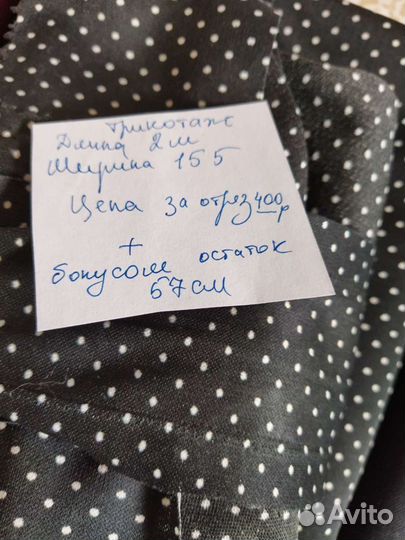 трикотаж
Длина 2 м
Ширина 155
Цена за отрез 400р
+
бонусом остаток
67 см
Avito